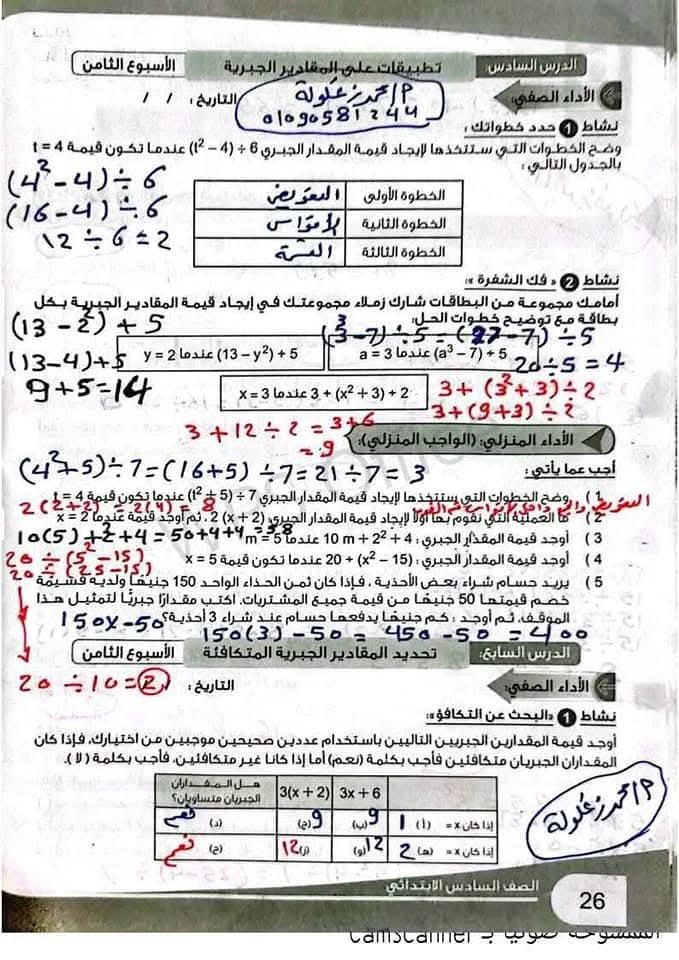 الدرس السادس: تطبيقات على المقادير الجبرية الأسبوع الثامن
الأداء الصفي: التاريخ: / /
م/محمد زغلولة
01090581244
نشاط 1 حدد خطواتك:
وضح الخطوات التي ستتخذها لإيجاد قيمة المقدار الجبري 6 ÷ (t² – 4) عندما تكون قيمة t = 4
بالجدول التالي:
(4² - 4) ÷ 6
(16 - 4) ÷ 6
12 ÷ 6 = 2
الخطوة الأولى التعويض
الخطوة الثانية الأقواس
الخطوة الثالثة القسمة
نشاط 2 « فك الشفرة »:
أمامك مجموعة من البطاقات شارك زملاء مجموعتك في إيجاد قيمة المقادير الجبرية بكل
بطاقة مع توضيح خطوات الحل:
(13 - 2²) + 5
(13 - 4) + 5
9 + 5 = 14
(3³ - 7) ÷ 5 = (27 - 7) ÷ 5
20 ÷ 5 = 4
a = 3 عندما (a³ – 7) ÷ 5
y = 2 عندما (13 – y²) + 5
x = 3 عندما 3 + (x² + 3) ÷ 2
3 + (3² + 3) ÷ 2
3 + (9 + 3) ÷ 2
3 + 12 ÷ 2 = 3 + 6
= 9
الأداء المنزلي: (الواجب المنزلي):
(4² + 5) ÷ 7 = (16 + 5) ÷ 7 = 21 ÷ 7 = 3
أجب عما يأتي:
1 ) وضح الخطوات التي ستتخذها لإيجاد قيمة المقدار الجبري 7 ÷ (t² + 5) عندما تكون قيمة t = 4
2 (2+2) = 2(4) = 8
2 ) ما العملية التي نقوم بها أولًا لإيجاد قيمة المقدار الجبري: 2 (x + 2) ، ثم أوجد قيمة عندما x = 2
10(5) + 2² + 4 = 50 + 4 + 4 = 58
3 ) أوجد قيمة المقدار الجبري: 10 m + 2² + 4 عندما m = 5
20 ÷ (5² - 15)
4 ) أوجد قيمة المقدار الجبري: 20 ÷ (x² – 15) عندما تكون قيمة x = 5
20 ÷ (25 - 15)
5 ) يريد حسام شراء بعض الأحذية ، فإذا كان ثمن الحذاء الواحد 150 جنيهًا ولديه قسيمة
خصم قيمتها 50 جنيهًا من قيمة جميع المشتريات. اكتب مقدارًا جبريًا لتمثيل هذا
الموقف، ثم أوجد: كم جنيهًا يدفعها حسام عند شراء 3 أحذية؟
150x - 50
150(3) - 50 = 450 - 50 = 400
الدرس السابع: تحديد المقادير الجبرية المتكافئة الأسبوع الثامن
20 ÷ 10 = 2
الأداء الصفي: التاريخ:
نشاط 1 «البحث عن التكافؤ»:
أوجد قيمة المقدارين الجبريين التاليين باستخدام عددين صحيحين موجبين من اختيارك، فإذا كان
المقداران الجبريان متكافئين فأجب بكلمة (نعم) أما إذا كانا غير متكافئين، فأجب بكلمة ( لا ).
3x + 6 3(x + 2) هل المقداران الجبريان متساويان؟
إذا كان x = (أ) 1 (ب) 9 (ج) 9 (د) نعم
إذا كان x = (هـ) 2 (و) 12 (ز) 12 (ح) نعم
م/محمد زغلولة
26 الصف السادس الابتدائي
الممسوحة ضوئيا بـ CamScanner